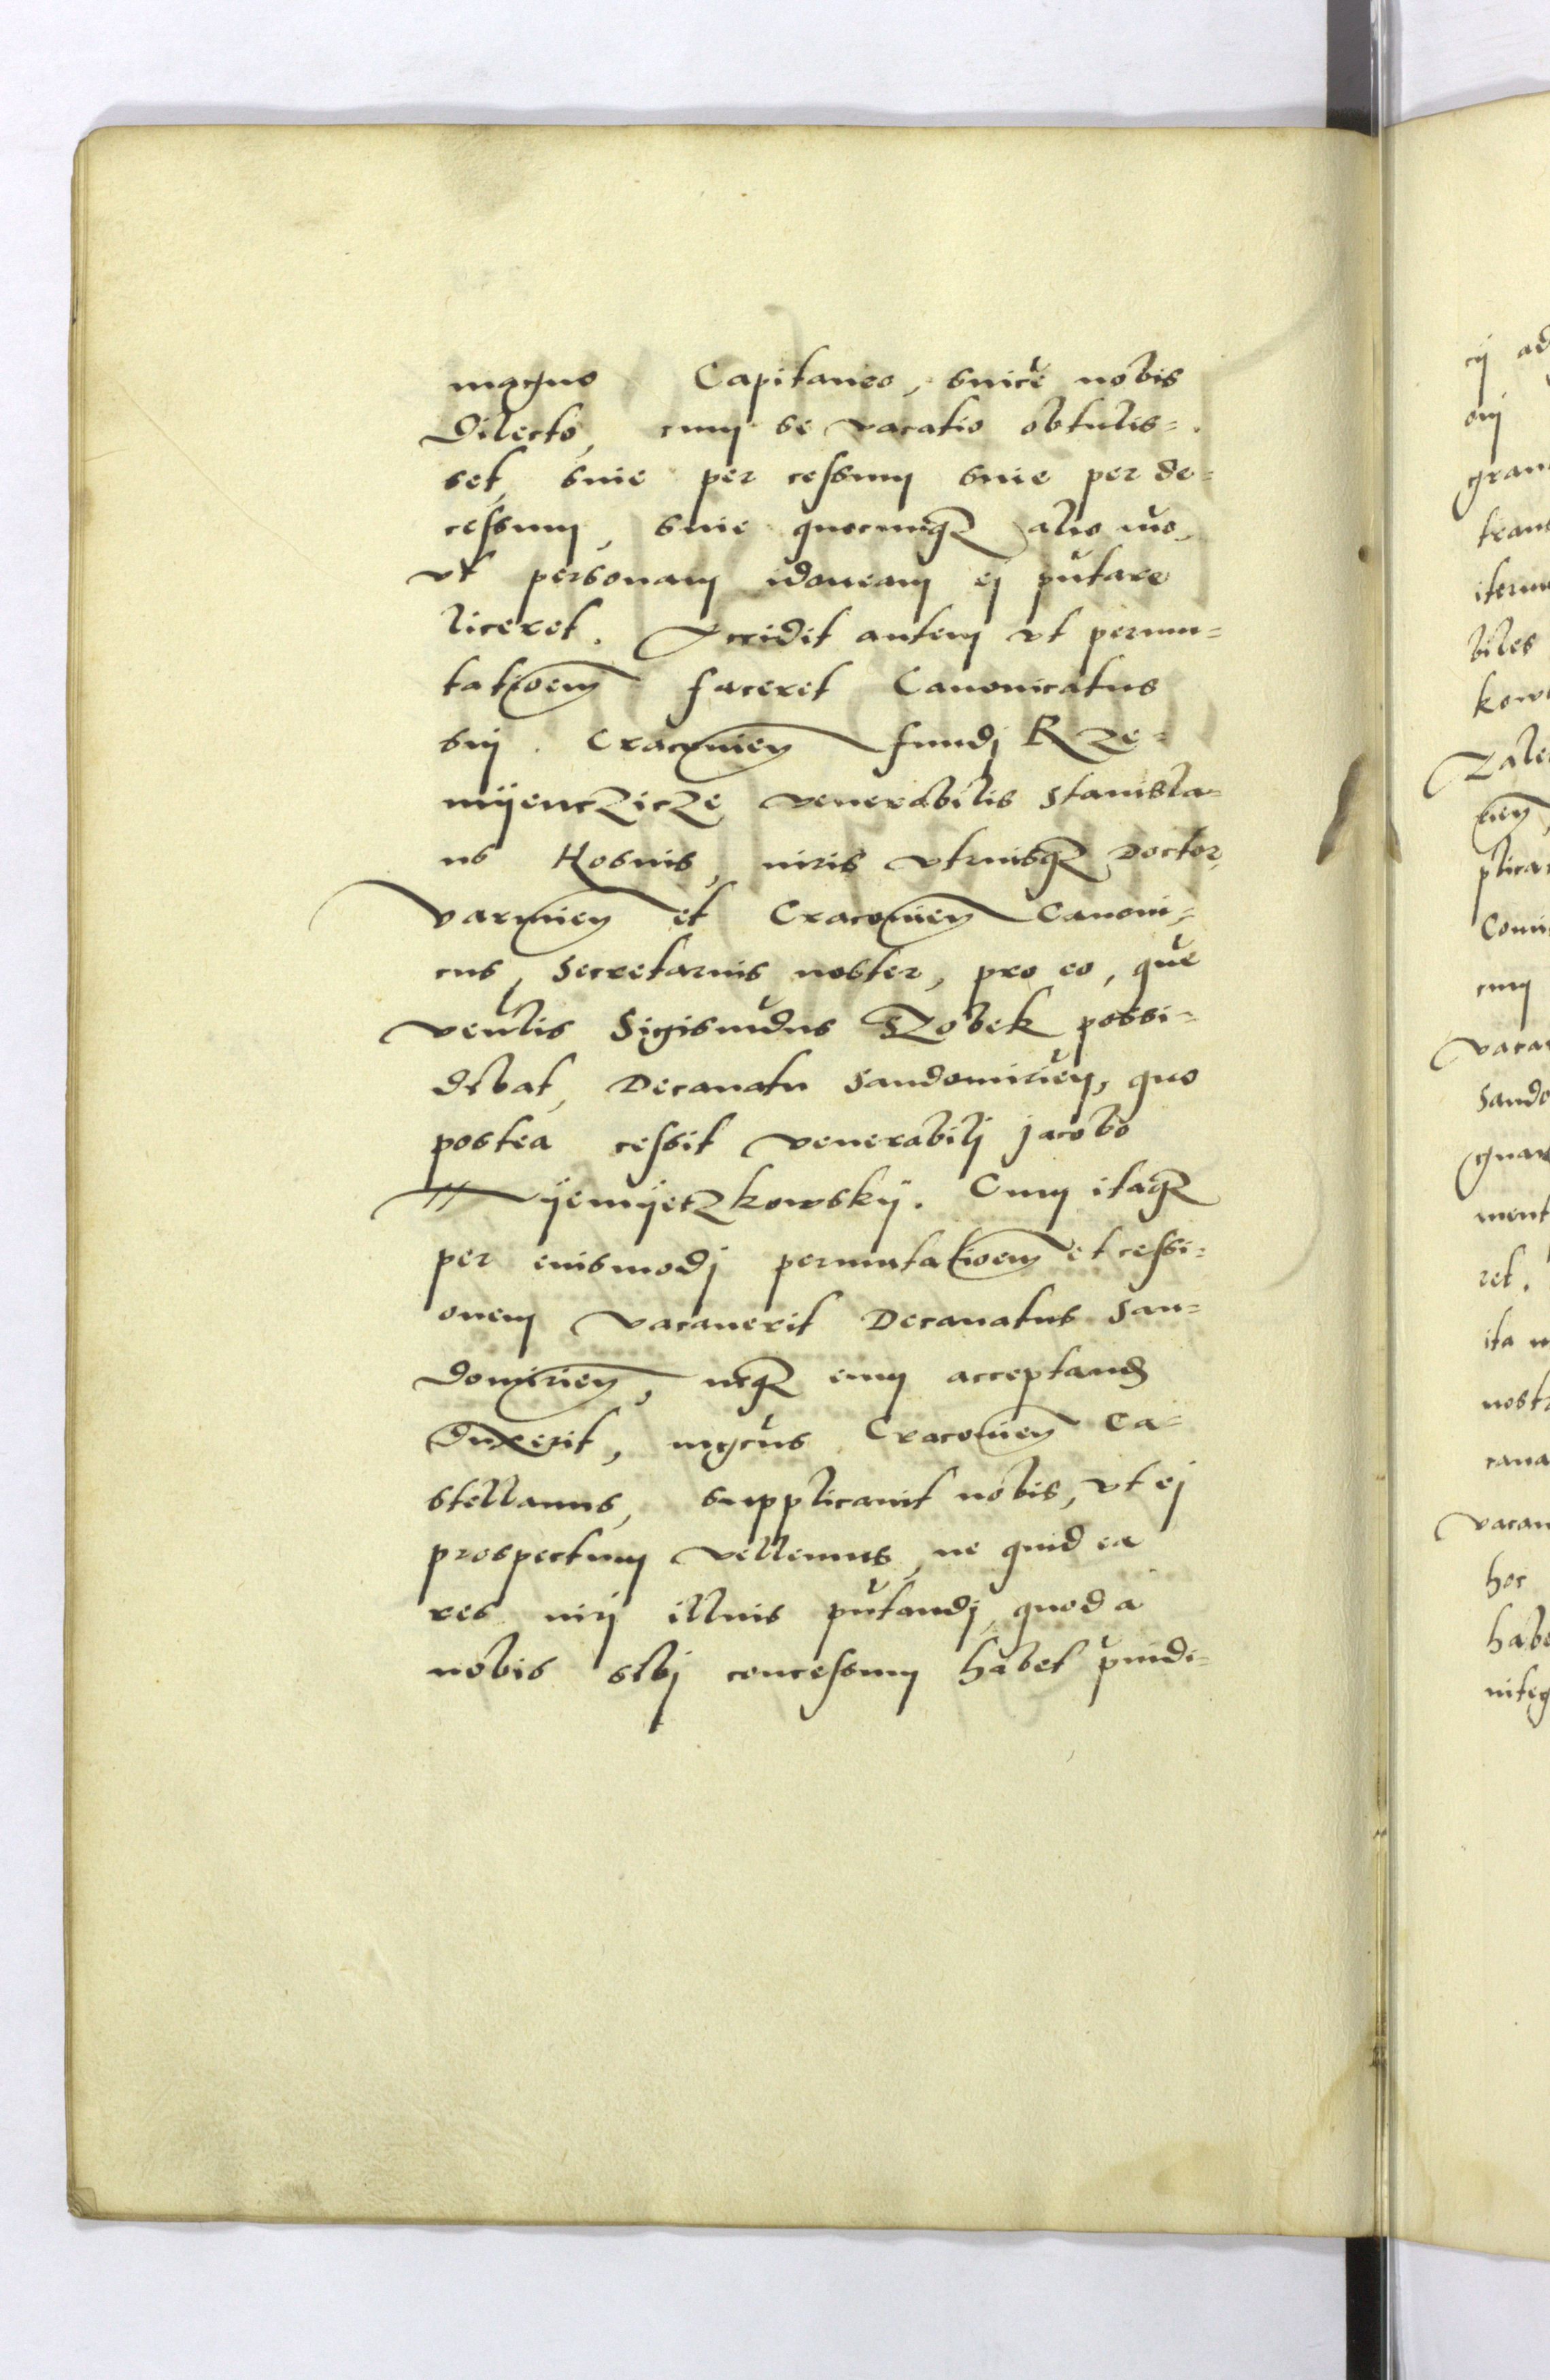 magno Capitaneo, sincere nobis
Dilecto, cum se vacatio obtulis=
set, siue per cessum siue per de=
cessum, siue quocunq alio mo,
vt personam idoneam ej pñtare
liceret. Accidit autem vt permu=
tatioem faceret Canonicatus
suj Cracouien fundj Rze=
myenczicze venerabilis Stanisla=
us Hosius, iuris vtriusq Doctor,
Varmien et Cracouien Canoni=
cus, Secretarius noster, pro eo, que
venlis Sigismudus Szobek possi=
debat, Decanatu Sandomirien, quo
postea cessit venerabilj Jacobo
Nyemyetzkowsky. Cum itaq
per eiusmodj permutatioem et cessi=
onem vacauerit Decanatus San=
domirien, neq eum acceptand
duxerit, mgcus Cracouien Ca=
stellanus, supplicauit nobis, vt ej
prospectum vellemus, ne quid ea
res iurj illius pñtandj, quod a
nobis sibj concessum habet piudi=
cij ad
gran
trans
biles
kow
plica
cum
vaca
Sando
gnar
ment
ret.
ita
nost
cana
vacan
hoc
habe